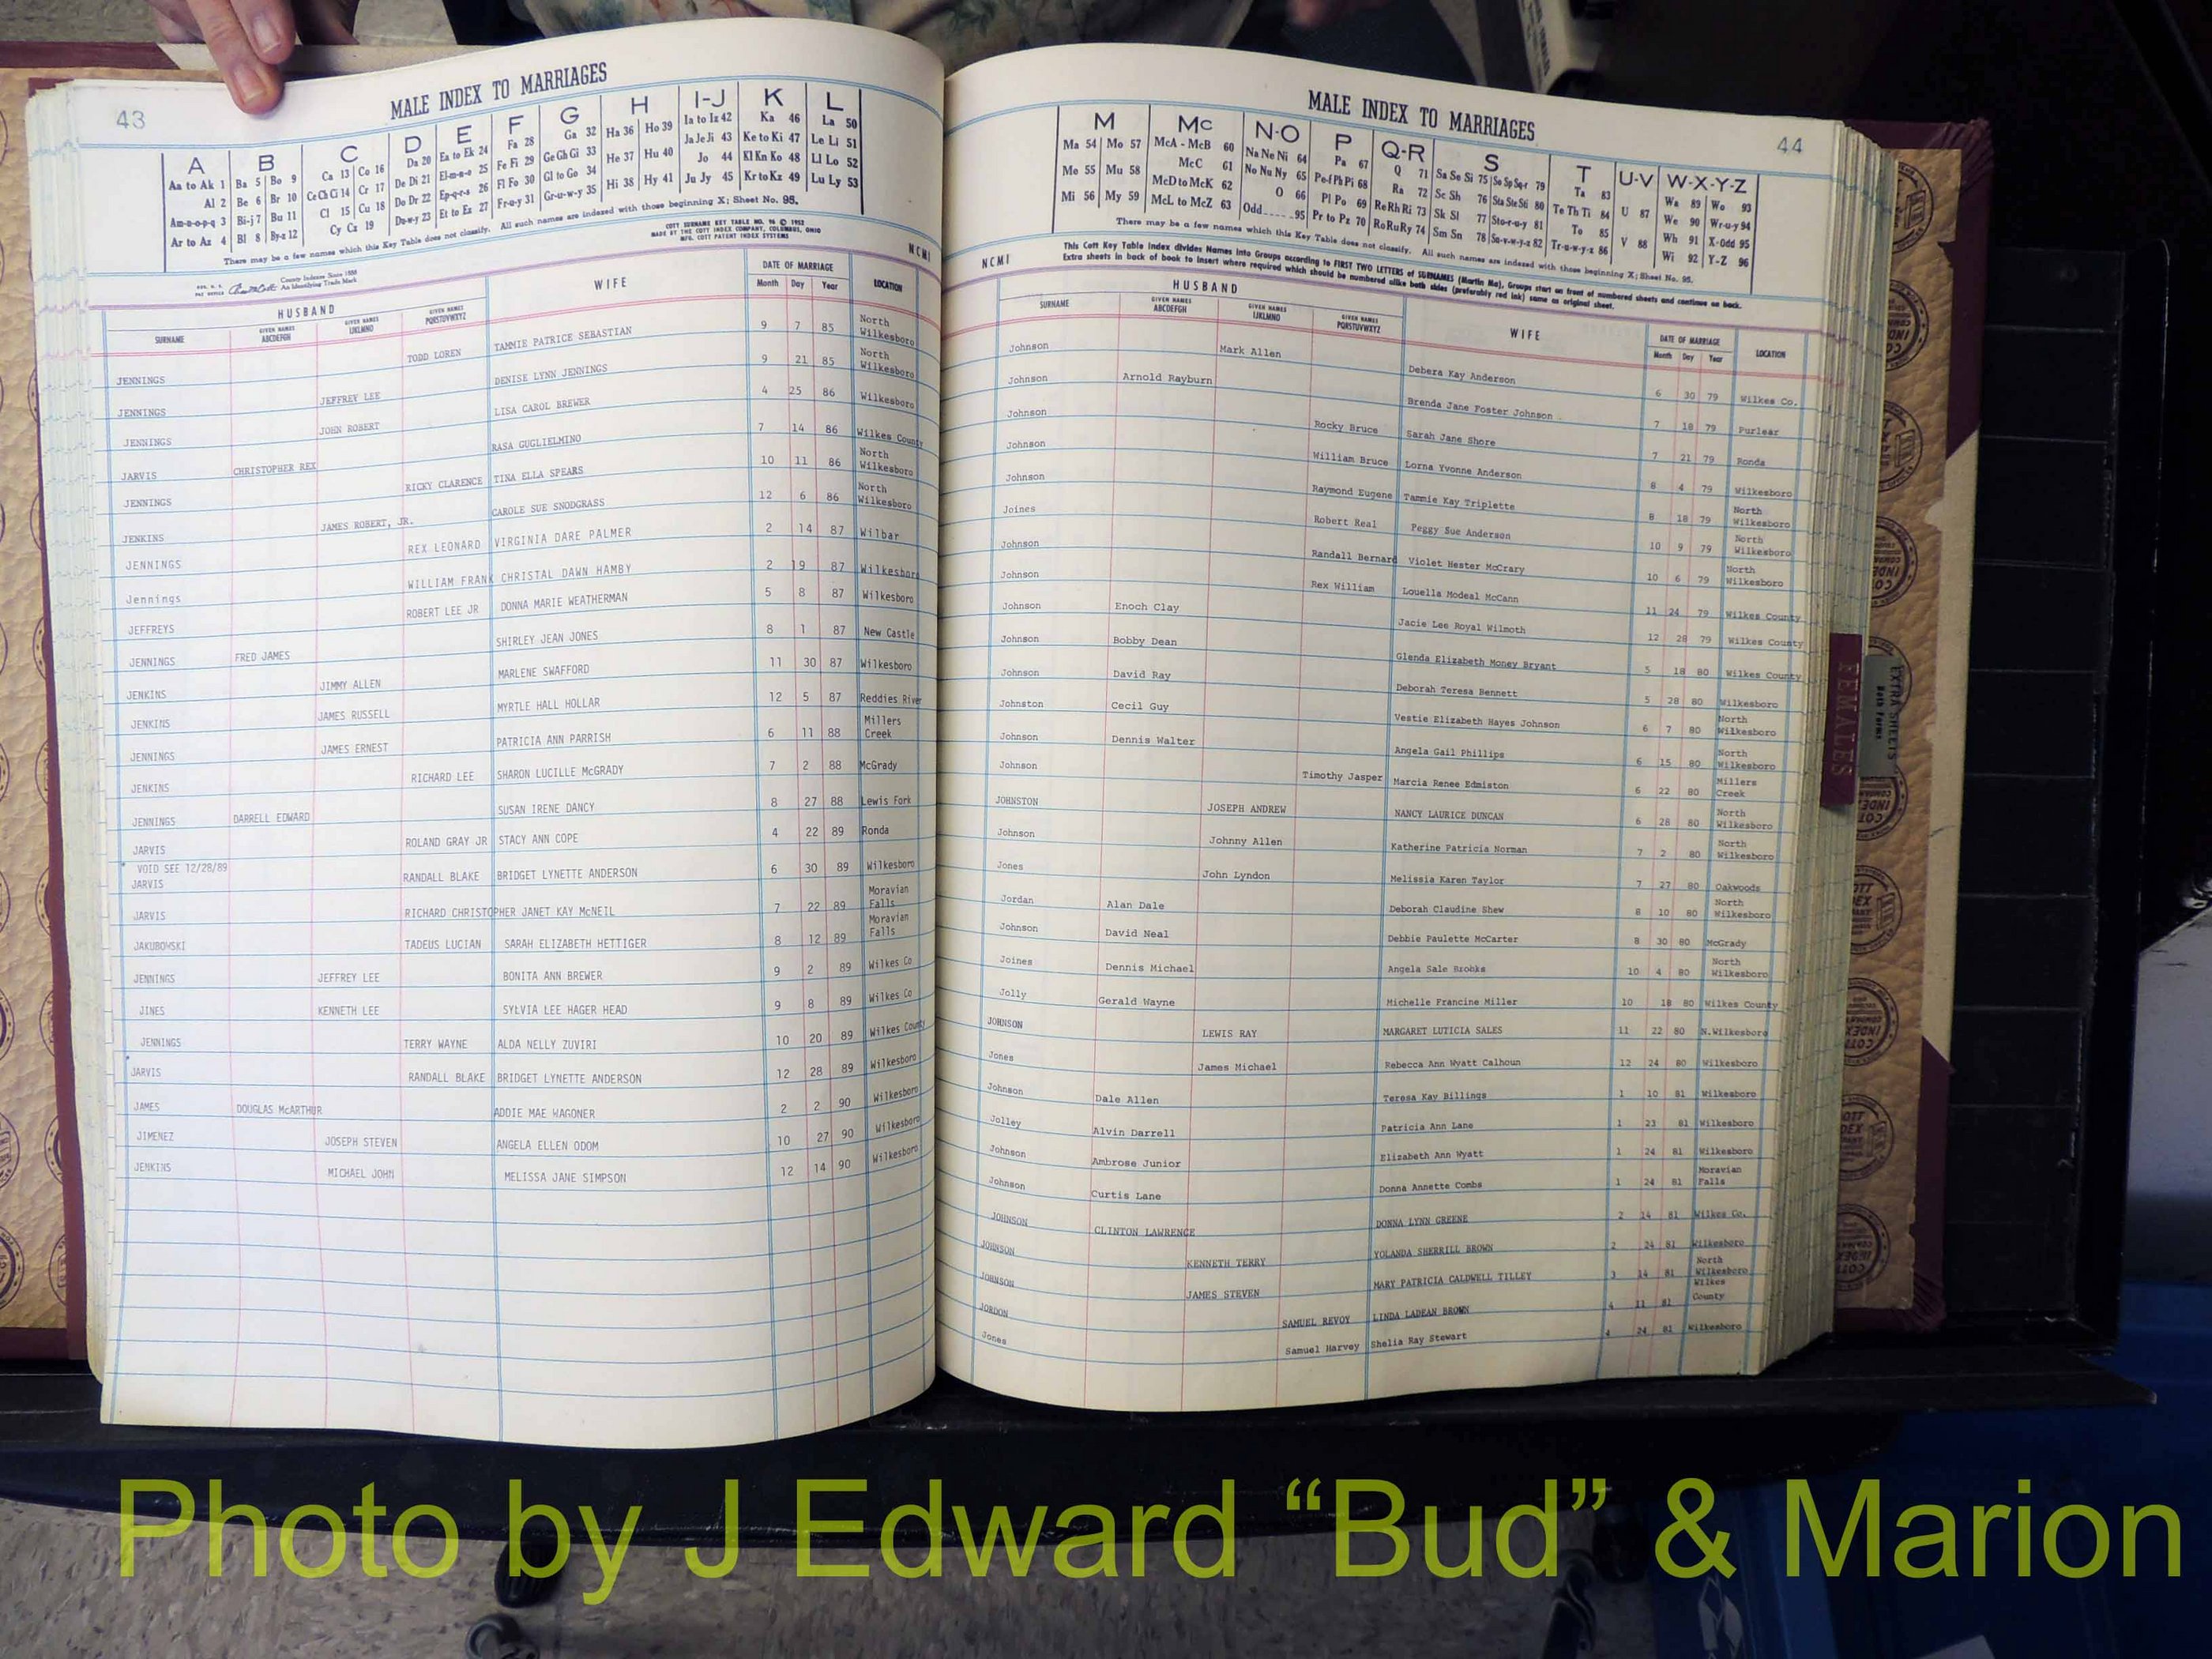 43
MALE INDEX TO MARRIAGES
A B C D E F G H I-J K L
Aa to Ak 1 Ba 5 Bo 9 Ca 13 Co 16 Da 20 Ea to Ek 24 Fa 28 Ga 32 Ha 36 Ho 39 Ia to Iz 42 Ka 46 La 50
Al 2 Be 6 Br 10 Ce Ch Ci 14 Cr 17 De Di 21 El-m-n-o 25 Fe Fi 29 Ge Gh Gi 33 He 37 Hu 40 Ja Je Ji 43 Ke to Ki 47 Le Li 51
Am-n-o-p-q 3 Bi-j 7 Bu 11 Cl 15 Cu 18 Do Dr 22 Ep-q-r-s 26 Fl Fo 30 Gl to Go 34 Hi 38 Hy 41 Jo 44 Kl Kn Ko 48 Ll Lo 52
Ar to Az 4 Bl 8 By-z 12 Cy Cz 19 Du-w-y 23 Et to Ez 27 Fr-u-y 31 Gr-u-w-y 35 Ju Jy 45 Kr to Kz 49 Lu Ly 53
There may be a few names which this Key Table does not classify. All such names are indexed with those beginning X; Sheet No. 95.
COTT SURNAME KEY TABLE NO. 96 © 1952
MADE BY THE COTT INDEX COMPANY, COLUMBUS, OHIO
MFG. COTT PATENT INDEX SYSTEMS
NCMI
County Indexes Since 1888
An Identifying Trade Mark
HUSBAND WIFE DATE OF MARRIAGE LOCATION
SURNAME GIVEN NAMES ABCDEFGH GIVEN NAMES IJKLMNO GIVEN NAMES PQRSTUVWXYZ Month Day Year
JENNINGS TODD LOREN TAMMIE PATRICE SEBASTIAN 9 7 85 North Wilkesboro
JENNINGS JEFFREY LEE DENISE LYNN JENNINGS 9 21 85 North Wilkesboro
JENNINGS JOHN ROBERT LISA CAROL BREWER 4 25 86 Wilkesboro
JARVIS CHRISTOPHER REX RASA GUGLIELMINO 7 14 86 Wilkes County
JENNINGS RICKY CLARENCE TINA ELLA SPEARS 10 11 86 North Wilkesboro
JENKINS JAMES ROBERT, JR. CAROLE SUE SNODGRASS 12 6 86 North Wilkesboro
JENNINGS REX LEONARD VIRGINIA DARE PALMER 2 14 87 Wilbar
Jennings WILLIAM FRANK CHRISTAL DAWN HAMBY 2 19 87 Wilkesboro
JEFFREYS ROBERT LEE JR DONNA MARIE WEATHERMAN 5 8 87 Wilkesboro
JENNINGS FRED JAMES SHIRLEY JEAN JONES 8 1 87 New Castle
JENKINS JIMMY ALLEN MARLENE SWAFFORD 11 30 87 Wilkesboro
JENKINS JAMES RUSSELL MYRTLE HALL HOLLAR 12 5 87 Reddies River
JENNINGS JAMES ERNEST PATRICIA ANN PARRISH 6 11 88 Millers Creek
JENKINS RICHARD LEE SHARON LUCILLE McGRADY 7 2 88 McGrady
JENNINGS DARRELL EDWARD SUSAN IRENE DANCY 8 27 88 Lewis Fork
JARVIS ROLAND GRAY JR STACY ANN COPE 4 22 89 Ronda
* VOID SEE 12/28/89
JARVIS RANDALL BLAKE BRIDGET LYNETTE ANDERSON 6 30 89 Wilkesboro
JARVIS RICHARD CHRISTOPHER JANET KAY McNEIL 7 22 89 Moravian Falls
JAKUBOWSKI TADEUS LUCIAN SARAH ELIZABETH HETTIGER 8 12 89 Moravian Falls
JENNINGS JEFFREY LEE BONITA ANN BREWER 9 2 89 Wilkes Co
JINES KENNETH LEE SYLVIA LEE HAGER HEAD 9 8 89 Wilkes Co
JENNINGS TERRY WAYNE ALDA NELLY ZUVIRI 10 20 89 Wilkes County
* JARVIS RANDALL BLAKE BRIDGET LYNETTE ANDERSON 12 28 89 Wilkesboro
JAMES DOUGLAS McARTHUR ADDIE MAE WAGONER 2 2 90 Wilkesboro
JIMENEZ JOSEPH STEVEN ANGELA ELLEN ODOM 10 27 90 Wilkesboro
JENKINS MICHAEL JOHN MELISSA JANE SIMPSON 12 14 90 Wilkesboro
MALE INDEX TO MARRIAGES
44
M Mc N-O P Q-R S T U-V W-X-Y-Z
Ma 54 Mo 57 McA - McB 60 Na Ne Ni 64 Pa 67 Q 71 Sa Se Si 75 So Sp Sq-r 79 Ta 83 U 87 Wa 89 Wo 93
Me 55 Mu 58 McC 61 No Nu Ny 65 Pe-f Ph Pi 68 Ra 72 Sc Sh 76 Sta Ste Sti 80 Te Th Ti 84 V 88 We 90 Wr-u-y 94
Mi 56 My 59 McD to McK 62 O 66 Pl Po 69 Re Rh Ri 73 Sk Sl 77 Sto-r-u-y 81 To 85 Wh 91 X-Odd 95
McL to McZ 63 Odd 95 Pr to Pz 70 Ro Ru Ry 74 Sm Sn 78 Su-v-w-y-z 82 Tr-u-w-y-z 86 Wi 92 Y-Z 96
There may be a few names which this Key Table does not classify. All such names are indexed with those beginning X; Sheet No. 95.
NCMI
This Cott Key Table Index divides Names into Groups according to FIRST TWO LETTERS of SURNAMES (Martin Ma), Groups start on front of numbered sheets and continue on back.
Extra sheets in back of book to insert where required which should be numbered alike both sides (preferably red ink) same as original sheet.
HUSBAND WIFE DATE OF MARRIAGE LOCATION
SURNAME GIVEN NAMES ABCDEFGH GIVEN NAMES IJKLMNO GIVEN NAMES PQRSTUVWXYZ Month Day Year
Johnson Mark Allen Debera Kay Anderson 6 30 79 Wilkes Co.
Johnson Arnold Rayburn Brenda Jane Foster Johnson 7 18 79 Purlear
Johnson Rocky Bruce Sarah Jane Shore 7 21 79 Ronda
Johnson William Bruce Lorna Yvonne Anderson 8 4 79 Wilkesboro
Johnson Raymond Eugene Tammie Kay Triplette 8 18 79 North Wilkesboro
Joines Robert Real Peggy Sue Anderson 10 9 79 North Wilkesboro
Johnson Randall Bernard Violet Hester McCrary 10 6 79 North Wilkesboro
Johnson Rex William Louella Modeal McCann 11 24 79 Wilkes County
Johnson Enoch Clay Jacie Lee Royal Wilmoth 12 28 79 Wilkes County
Johnson Bobby Dean Glenda Elizabeth Money Bryant 5 18 80 Wilkes County
Johnson David Ray Deborah Teresa Bennett 5 28 80 Wilkesboro
Johnston Cecil Guy Vestie Elizabeth Hayes Johnson 6 7 80 North Wilkesboro
Johnson Dennis Walter Angela Gail Phillips 6 15 80 North Wilkesboro
Johnson Timothy Jasper Marcia Renee Edmiston 6 22 80 Millers Creek
JOHNSTON JOSEPH ANDREW NANCY LAURICE DUNCAN 6 28 80 North Wilkesboro
Johnson Johnny Allen Katherine Patricia Norman 7 2 80 North Wilkesboro
Jones John Lyndon Melissia Karen Taylor 7 27 80 Oakwoods
Jordan Alan Dale Deborah Claudine Shew 8 10 80 North Wilkesboro
Johnson David Neal Debbie Paulette McCarter 8 30 80 McGrady
Joines Dennis Michael Angela Sale Brooks 10 4 80 North Wilkesboro
Jolly Gerald Wayne Michelle Francine Miller 10 18 80 Wilkes County
JOHNSON LEWIS RAY MARGARET LUTICIA SALES 11 22 80 N.Wilkesboro
Jones James Michael Rebecca Ann Wyatt Calhoun 12 24 80 Wilkesboro
Johnson Dale Allen Teresa Kay Billings 1 10 81 Wilkesboro
Jolley Alvin Darrell Patricia Ann Lane 1 23 81 Wilkesboro
Johnson Ambrose Junior Elizabeth Ann Wyatt 1 24 81 Wilkesboro
Johnson Curtis Lane Donna Annette Combs 1 24 81 Moravian Falls
JOHNSON CLINTON LAWRENCE DONNA LYNN GREENE 2 14 81 Wilkes Co.
JOHNSON KENNETH TERRY YOLANDA SHERRILL BROWN 2 24 81 Wilkesboro
JOHNSON JAMES STEVEN MARY PATRICIA CALDWELL TILLEY 3 14 81 North Wilkesboro
JORDON SAMUEL REVOY LINDA LADEAN BROWN 4 11 81 Wilkes County
Jones Samuel Harvey Shelia Ray Stewart 4 24 81 Wilkesboro
FEMALES
EXTRA SHEETS
Photo by J Edward “Bud” & Marion